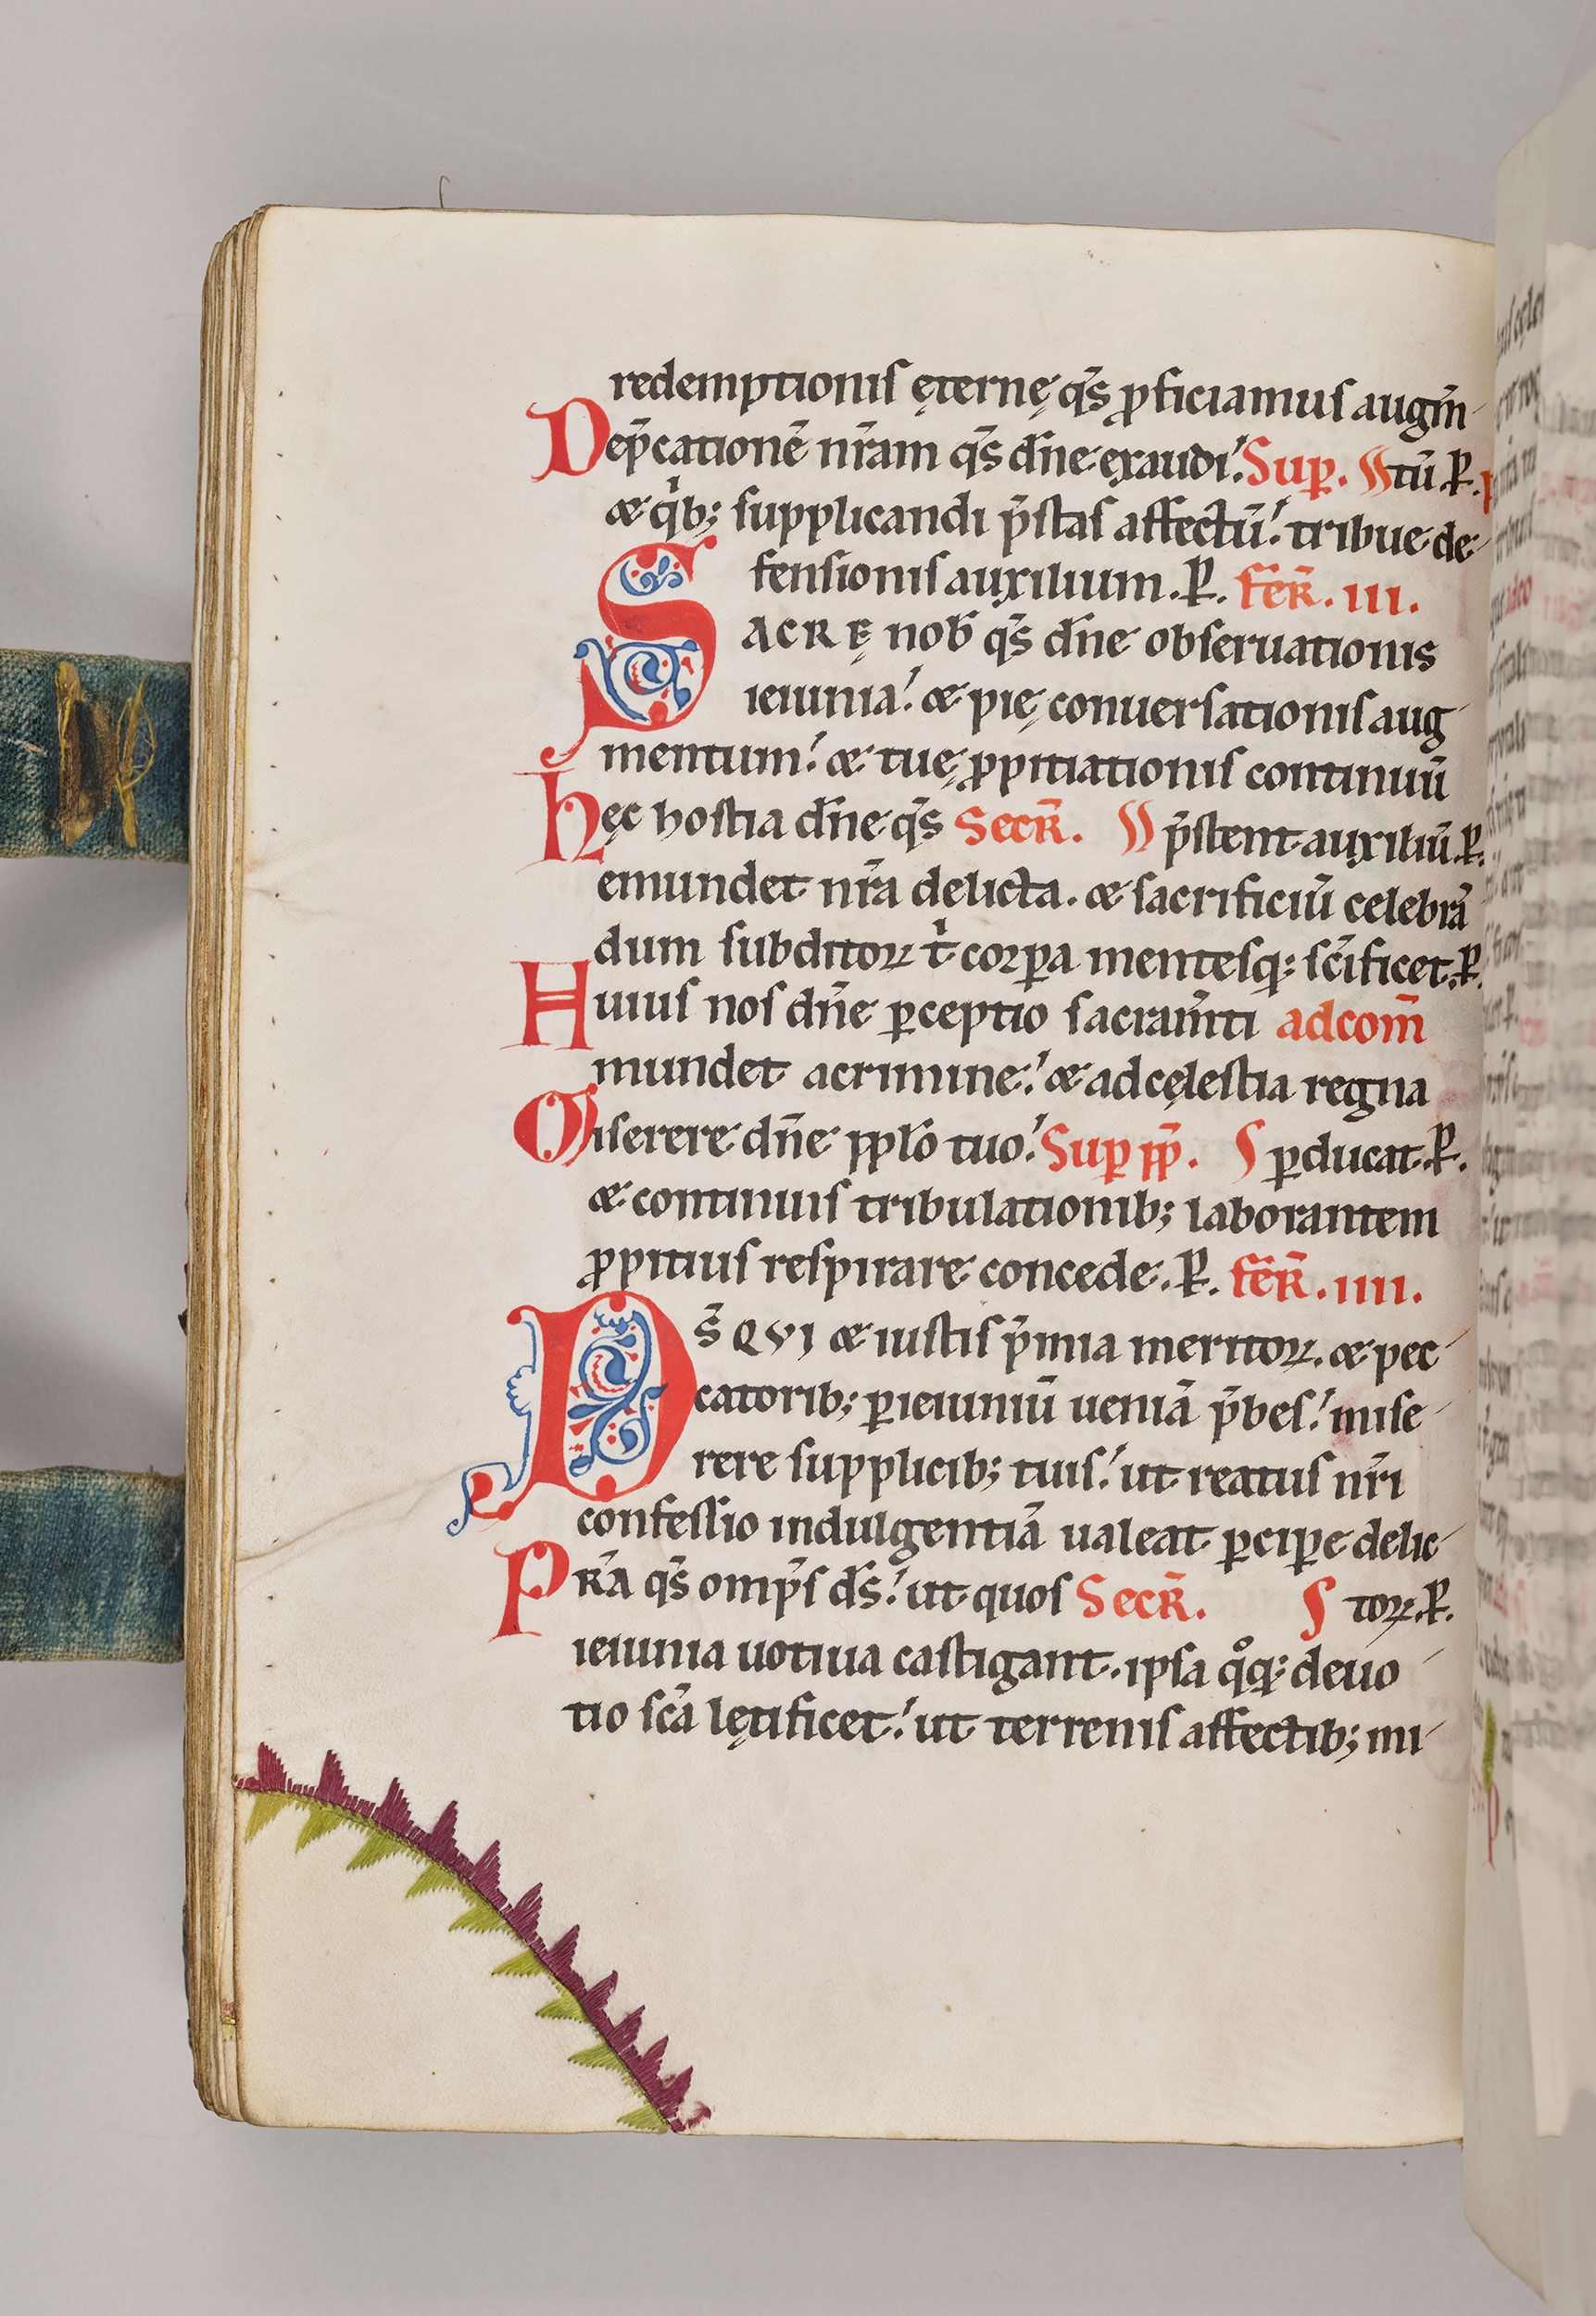 redemptionis ęternę q̄s ꝓficiamus augm̄
Dep̄cationē nr̄am q̄s dn̄e exaudi. Suꝑ. tū. ꝑ.
& qͥb; supplicandi p̄stas affectū. tribue de-
fensionis auxilium. ꝑ. fēR. III.
SACRĘ nob̄ q̄s dn̄e obseruationis
ieiunia. & pię conuersationis aug
mentum. & tuę ꝓpitiationis continuū
hęc hostia dn̄e q̄s SecR̄. p̄stent auxiliū. ꝑ.
emundet nr̄a delicta. & sacrificiū celebrā
dum subditoꝝ tͥ corꝑa mentesq; sc̄ificet. ꝑ.
Huius nos dn̄e ꝑceptio sacram̄ti adcom̄
mundet acrimine. & adcęlestia regna
Miserere dn̄e pplo̅ tuo. Suꝑ pp̄. ꝑducat. ꝑ.
& continuis tribulationib; laborantem
ꝓpitius respirare concede. ꝑ. fēR. IIII.
Ds̄ QVI & iustis p̄mia meritoꝝ. & pec-
catorib; ꝑ ieiuniū ueniā p̄bes. mise-
rere supplicib; tuis. ut reatus nr̄i
confessio indulgentiā ualeat ꝑciꝑe delic-
PR̄A q̄s omp̄s ds̄. ut quos SecR̄. toꝝ. ꝑ.
ieiunia uotiua castigant. ipsa qͦq; deuo-
tio sc̄a lętificet. ut terrenis affectib; mi-